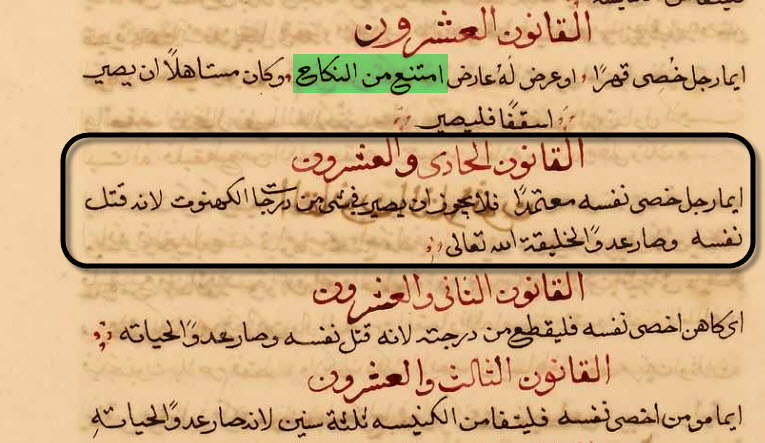 القانون العشرون
ايما رجل خُصى قهرًا او عرض لهُ عارض امتنع من النكاح وكان مستاهلًا ان يصير
اسقفًا فليصير
القانون الحادى والعشرون
ايما رجل خصى نفسه معتمدًا فلا يجوز ان يصير فى شى من درجات الكهنوت لانه قتل
نفسه وصار عدوًا لخليقة الله تعالى
القانون الثانى والعشرون
اى كاهن اخصى نفسه فليقطع من درجته لانه قتل نفسه وصار عدوًا لحياته
القانون الثالث والعشرون
ايما مومن اخصى نفسه فلينفا من الكنيسه ثلثة سنين لانه صار عدوًا لحياتهِ